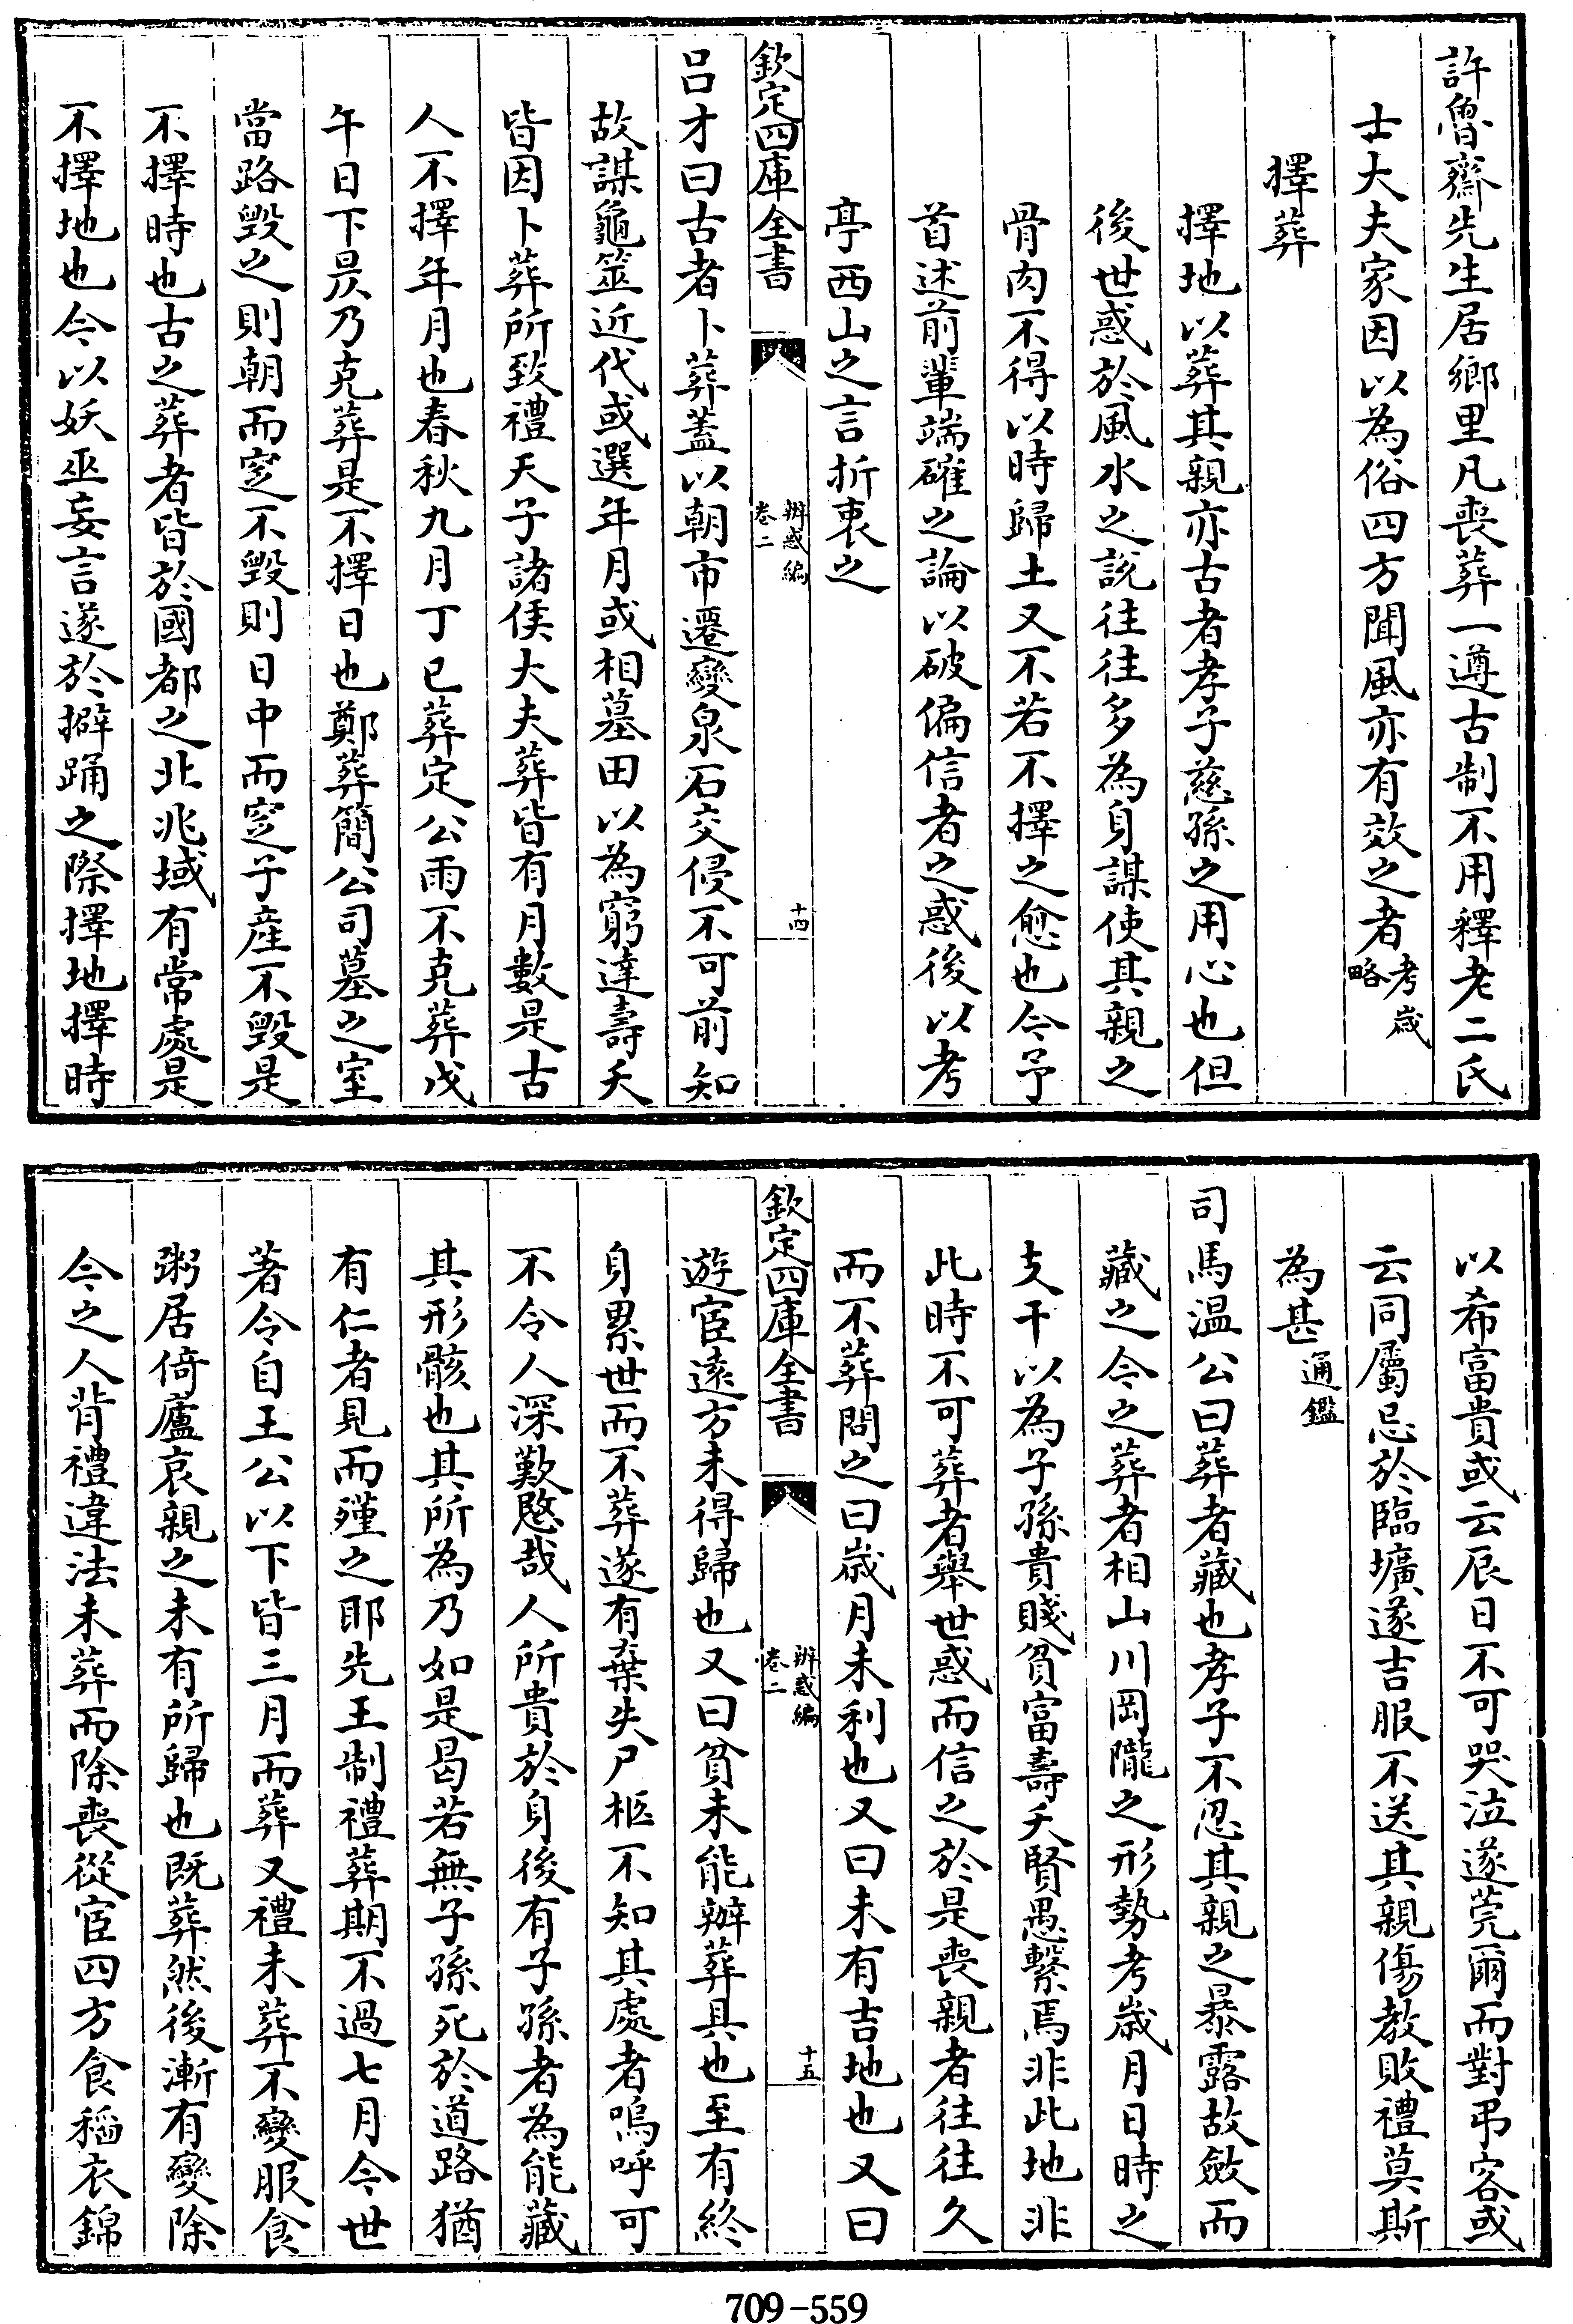 許魯齋先生居鄉里凡喪葬一遵古制不用釋老二氏
士大夫家因以為俗四方聞風亦有效之者考歲略
擇葬
擇地以葬其親亦古者孝子慈孫之用心也但
後世惑於風水之說往往多為身謀使其親之
骨肉不得以時歸土又不若不擇之愈也今予
首述前輩端確之論以破偏信者之惑後以考
亭西山之言折衷之
欽定四庫全書 辨惑編 卷二 十四
呂才曰古者卜葬蓋以朝市遷變泉石交侵不可前知
故謀龜筮近代或選年月或相墓田以為窮達壽夭
皆因卜葬所致禮天子諸侯大夫葬皆有月數是古
人不擇年月也春秋九月丁巳葬定公雨不克葬戊
午日下昃乃克葬是不擇日也鄭葬簡公司墓之室
當路毀之則朝而窆不毀則日中而窆子產不毀是
不擇時也古之葬者皆於國都之北兆域有常處是
不擇地也今以妖巫妄言遂於擗踊之際擇地擇時
以希富貴或云辰日不可哭泣遂莞爾而對弔客或
云同屬忌於臨壙遂吉服不送其親傷教敗禮莫斯
為甚通鑑
司馬温公曰葬者藏也孝子不忍其親之暴露故斂而
藏之今之葬者相山川岡隴之形勢考歲月日時之
支干以為子孫貴賤貧富壽夭賢愚繫焉非此地非
此時不可葬者舉世惑而信之於是喪親者往往久
而不葬問之曰歲月未利也又曰未有吉地也又曰
欽定四庫全書 辨惑編 卷二 十五
遊宦遠方未得歸也又曰貧未能辦葬具也至有終
身累世而不葬遂有棄失尸柩不知其處者嗚呼可
不令人深歎愍哉人所貴於身後有子孫者為能藏
其形骸也其所為乃如是曷若無子孫死於道路猶
有仁者見而殣之耶先王制禮葬期不過七月今世
著令自王公以下皆三月而葬又禮未葬不變服食
粥居倚廬哀親之未有所歸也既葬然後漸有變除
今之人背禮違法未葬而除喪從宦四方食稻衣錦
709-559